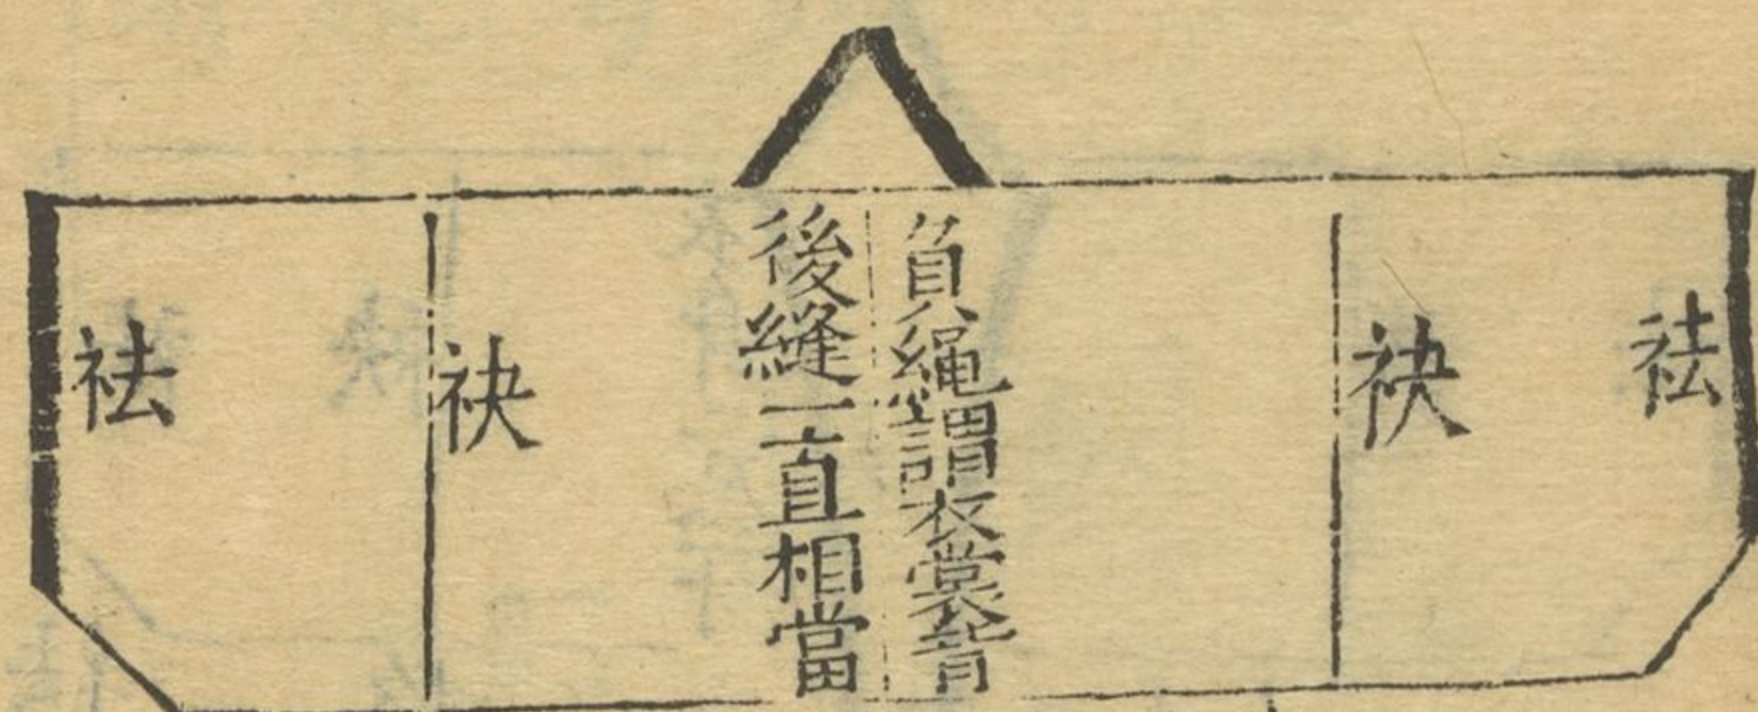 袪
袂
負繩謂衣裳背
後縫一直相當
袂
袪